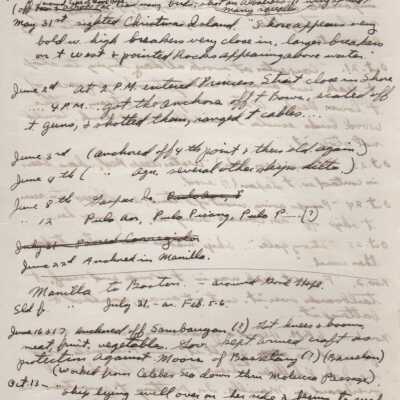 May 31st sighted Christmas Island. "Shore appears very
bold w. high breakers very close in, larger breakers
on t west & pointed Rocks appearing above water.
June 2nd at 2 P.M. entered Princess Strait close in shore
" " 4 P.M. got the anchors off t Bows, scaled off
t guns, & shotted them, ranged t cables....
June 3rd (anchored off 4th point & thus old again)
June 4th ( " Aga, several other ships ditto.)
June 8th Gaspar Is.
" 12 Pulo Aor, Pulo Pisang, Pulo P— (?)
July 31 Passed Corregidor
June 22d Anchored in Manilla.
Manilla to Boston. — around Good Hope.
Sld fr. July 31. – ar. Feb. 5-6.
June 16 & 17, anchored off Samboangan (?) Got knees & boom
meat, fruit, vegetables. Gov. kept armed craft as
protection against Moors of (?)
(worked from Celebes Sea down thru Molucca Passage)
Oct 13 – " ship lying well over on her side &